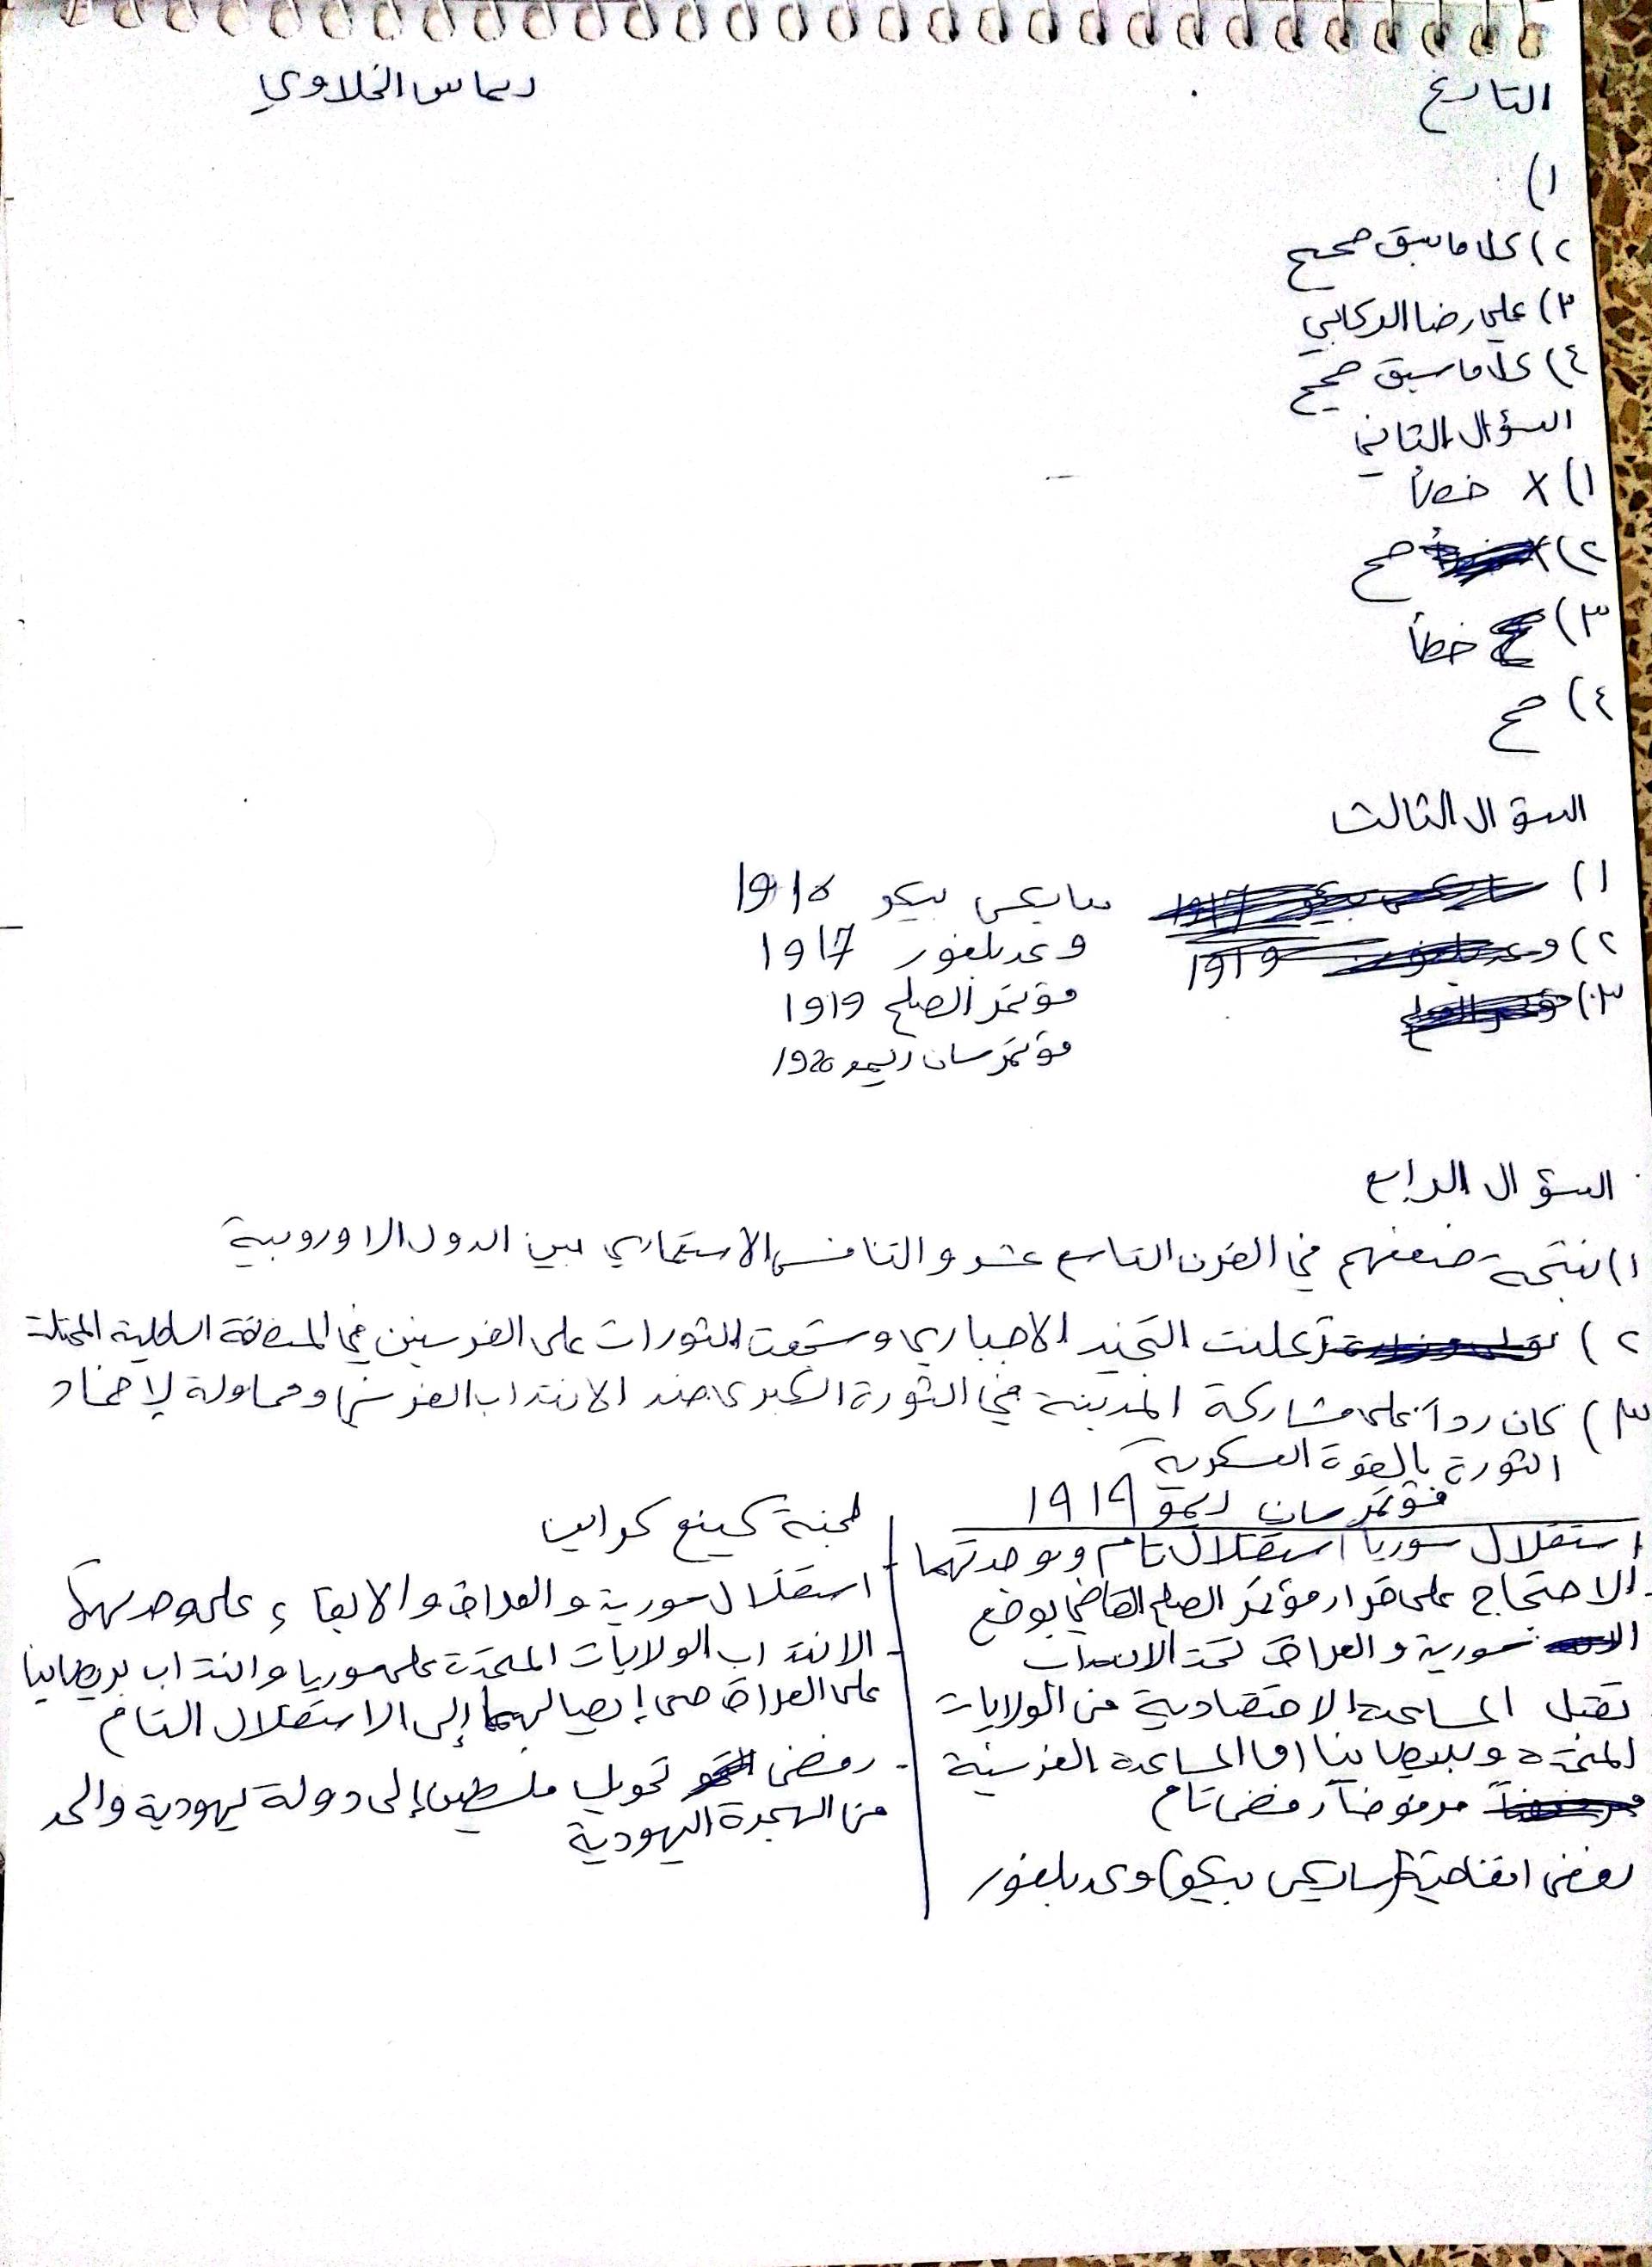 التاريخ
ديماس الخلاوي
١)
٢) كلا ما سبق صحيح
٣) علي رضا الركابي
٤) كلا ما سبق صحيح
السؤال الثاني
١) X خطأ
٢) X صح
٣) خطأ
٤) صح
السؤال الثالث
١) سايكس بيكو 1916
٢) وعد بلفور 1917
٣) مؤتمر الصلح 1919
مؤتمر سان ريمو 1920
السؤال الرابع
١) نتيجة ضعفهم في القرن التاسع عشر والتنافس الاستعماري بين الدول الاوروبية
٢) أعلنت التجنيد الاجباري وشجعت الثورات على الفرنسين في المنطقة الساحلية المحتلة
٣) كان رداً على مشاركة المدينة في الثورة الكبرى ضد الانتداب الفرنسي ومحاولة لإخماد
الثورة بالقوة العسكرية
مؤتمر سان ريمو 1919
استقلال سوريا استقلال تام ووحدتهما
الاحتجاج على قرار مؤتمر الصلح القاضي بوضع
سورية والعراق تحت الانتداب
تقبل المساعدة الاقتصادية من الولايات
المتحدة وبريطانيا اما المساعدة الفرنسية
مرفوضاً رفض تام
رفض اتفاقية (سايكس بيكو) وعد بلفور
لجنة كينغ كراين
- استقلال سورية والعراق والابقاء على وحدتهما
- الانتداب الولايات المتحدة على سوريا وانتداب بريطانيا
على العراق حتى إيصالهما إلى الاستقلال التام
- رفض تحويل فلسطين إلى دولة يهودية والحد
من الهجرة اليهودية